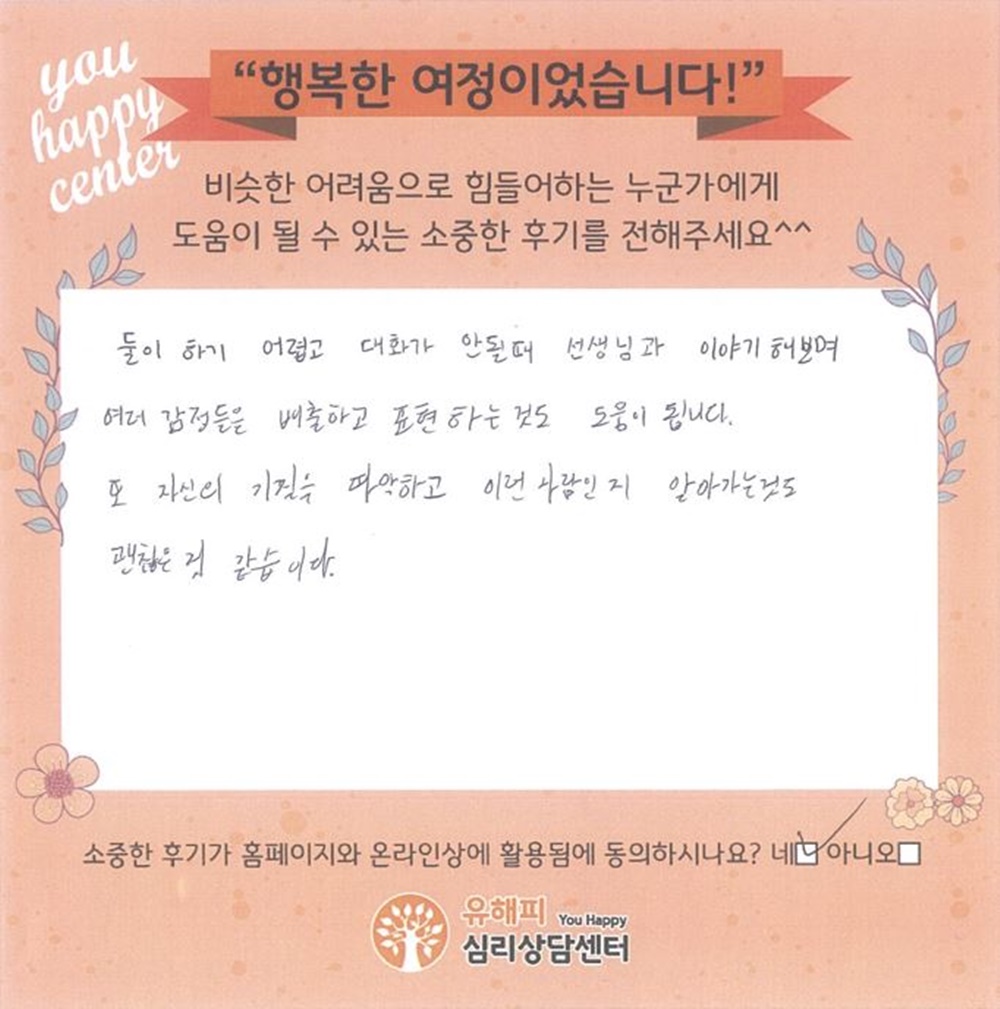 you
happy
center
“행복한 여정이었습니다!”
비슷한 어려움으로 힘들어하는 누군가에게
도움이 될 수 있는 소중한 후기를 전해주세요^^
둘이 하기 어렵고 대화가 안될때 선생님과 이야기 해보며
여러 감정들은 배출하고 표현하는것도 도움이 됩니다.
또 자신의 기질을 파악하고 이런 사람인지 알아가는것도
괜찮은 것 같습니다.
소중한 후기가 홈페이지와 온라인상에 활용됨에 동의하시나요? 네 아니오
유해피 You Happy
심리상담센터